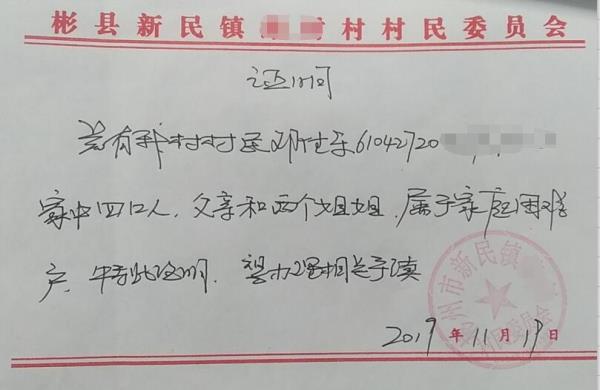 彬县新民镇村村民委员会
证明
兹有我村村民61042720
家中四口人,父亲和两个姐姐,属于家庭困难
户,特此证明,望办理相关手续
2019年11月19日
州市新民镇
村民委员会